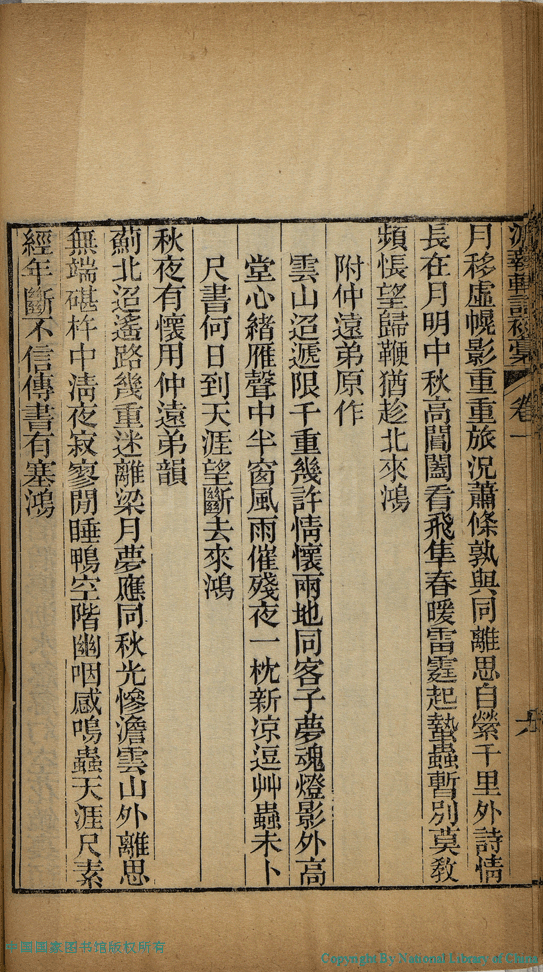 月移虛幌影重重旅況蕭條孰與同離思自縈千里外詩情
長在月明中秋高閶闔看飛隼春暖雷霆起蟄蟲暫別莫教
頻悵望歸鞭猶趁北來鴻
附仲遠弟原作
雲山迢遞限千重幾許情懷兩地同客子夢魂燈影外高
堂心緒雁聲中半窗風雨催殘夜一枕新凉逗艸蟲未卜
尺書何日到天涯望斷去來鴻
秋夜有懷用仲遠弟韻
薊北迢遙路幾重迷離梁月夢應同秋光慘澹雲山外離思
無端碪杵中淸夜寂寥閒睡鴨空階幽咽感鳴蟲天涯尺素
經年斷不信傳書有塞鴻
卷一
中国国家图书馆版权所有
Copyright By National Library of China